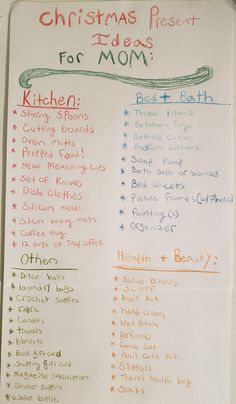 Christmas Present
Ideas
For MOM:
Kitchen:
* Stiring Spoons
* Cutting boards
* Oven Mitts
* Prepped Food!
* New Measuring Cups
* Set of Knives
* Dish Clothes
* Silicon molds
* Silicon baking mats
* Coffee mug
* 12 days of Tea/coffee
Bed + Bath
* Throw Pillows
* Bathroom
* Bathtub
* Bedroom Curtians
* Soap Pump
* Bath salts or bombs
* Bed Sheets
* Picture Frames (w/Photos)
* Painting(s)
* Organizer
Others
* Dryer balls
* laundry bags
* Crochet Supplies
* Fabric
* Candles
* towels
* blankets
* Book gift card
* Shopping gift card
* Magazine Subscription
* Supplies
* Water bottle
Health + Beauty:
* Scrub brushes
* Scarf
* hair kit
* hand cream
* Nail Polish
* Perfume
* Comb Set
* Nail care kit
* Slippers
* Travel health bag
* Socks